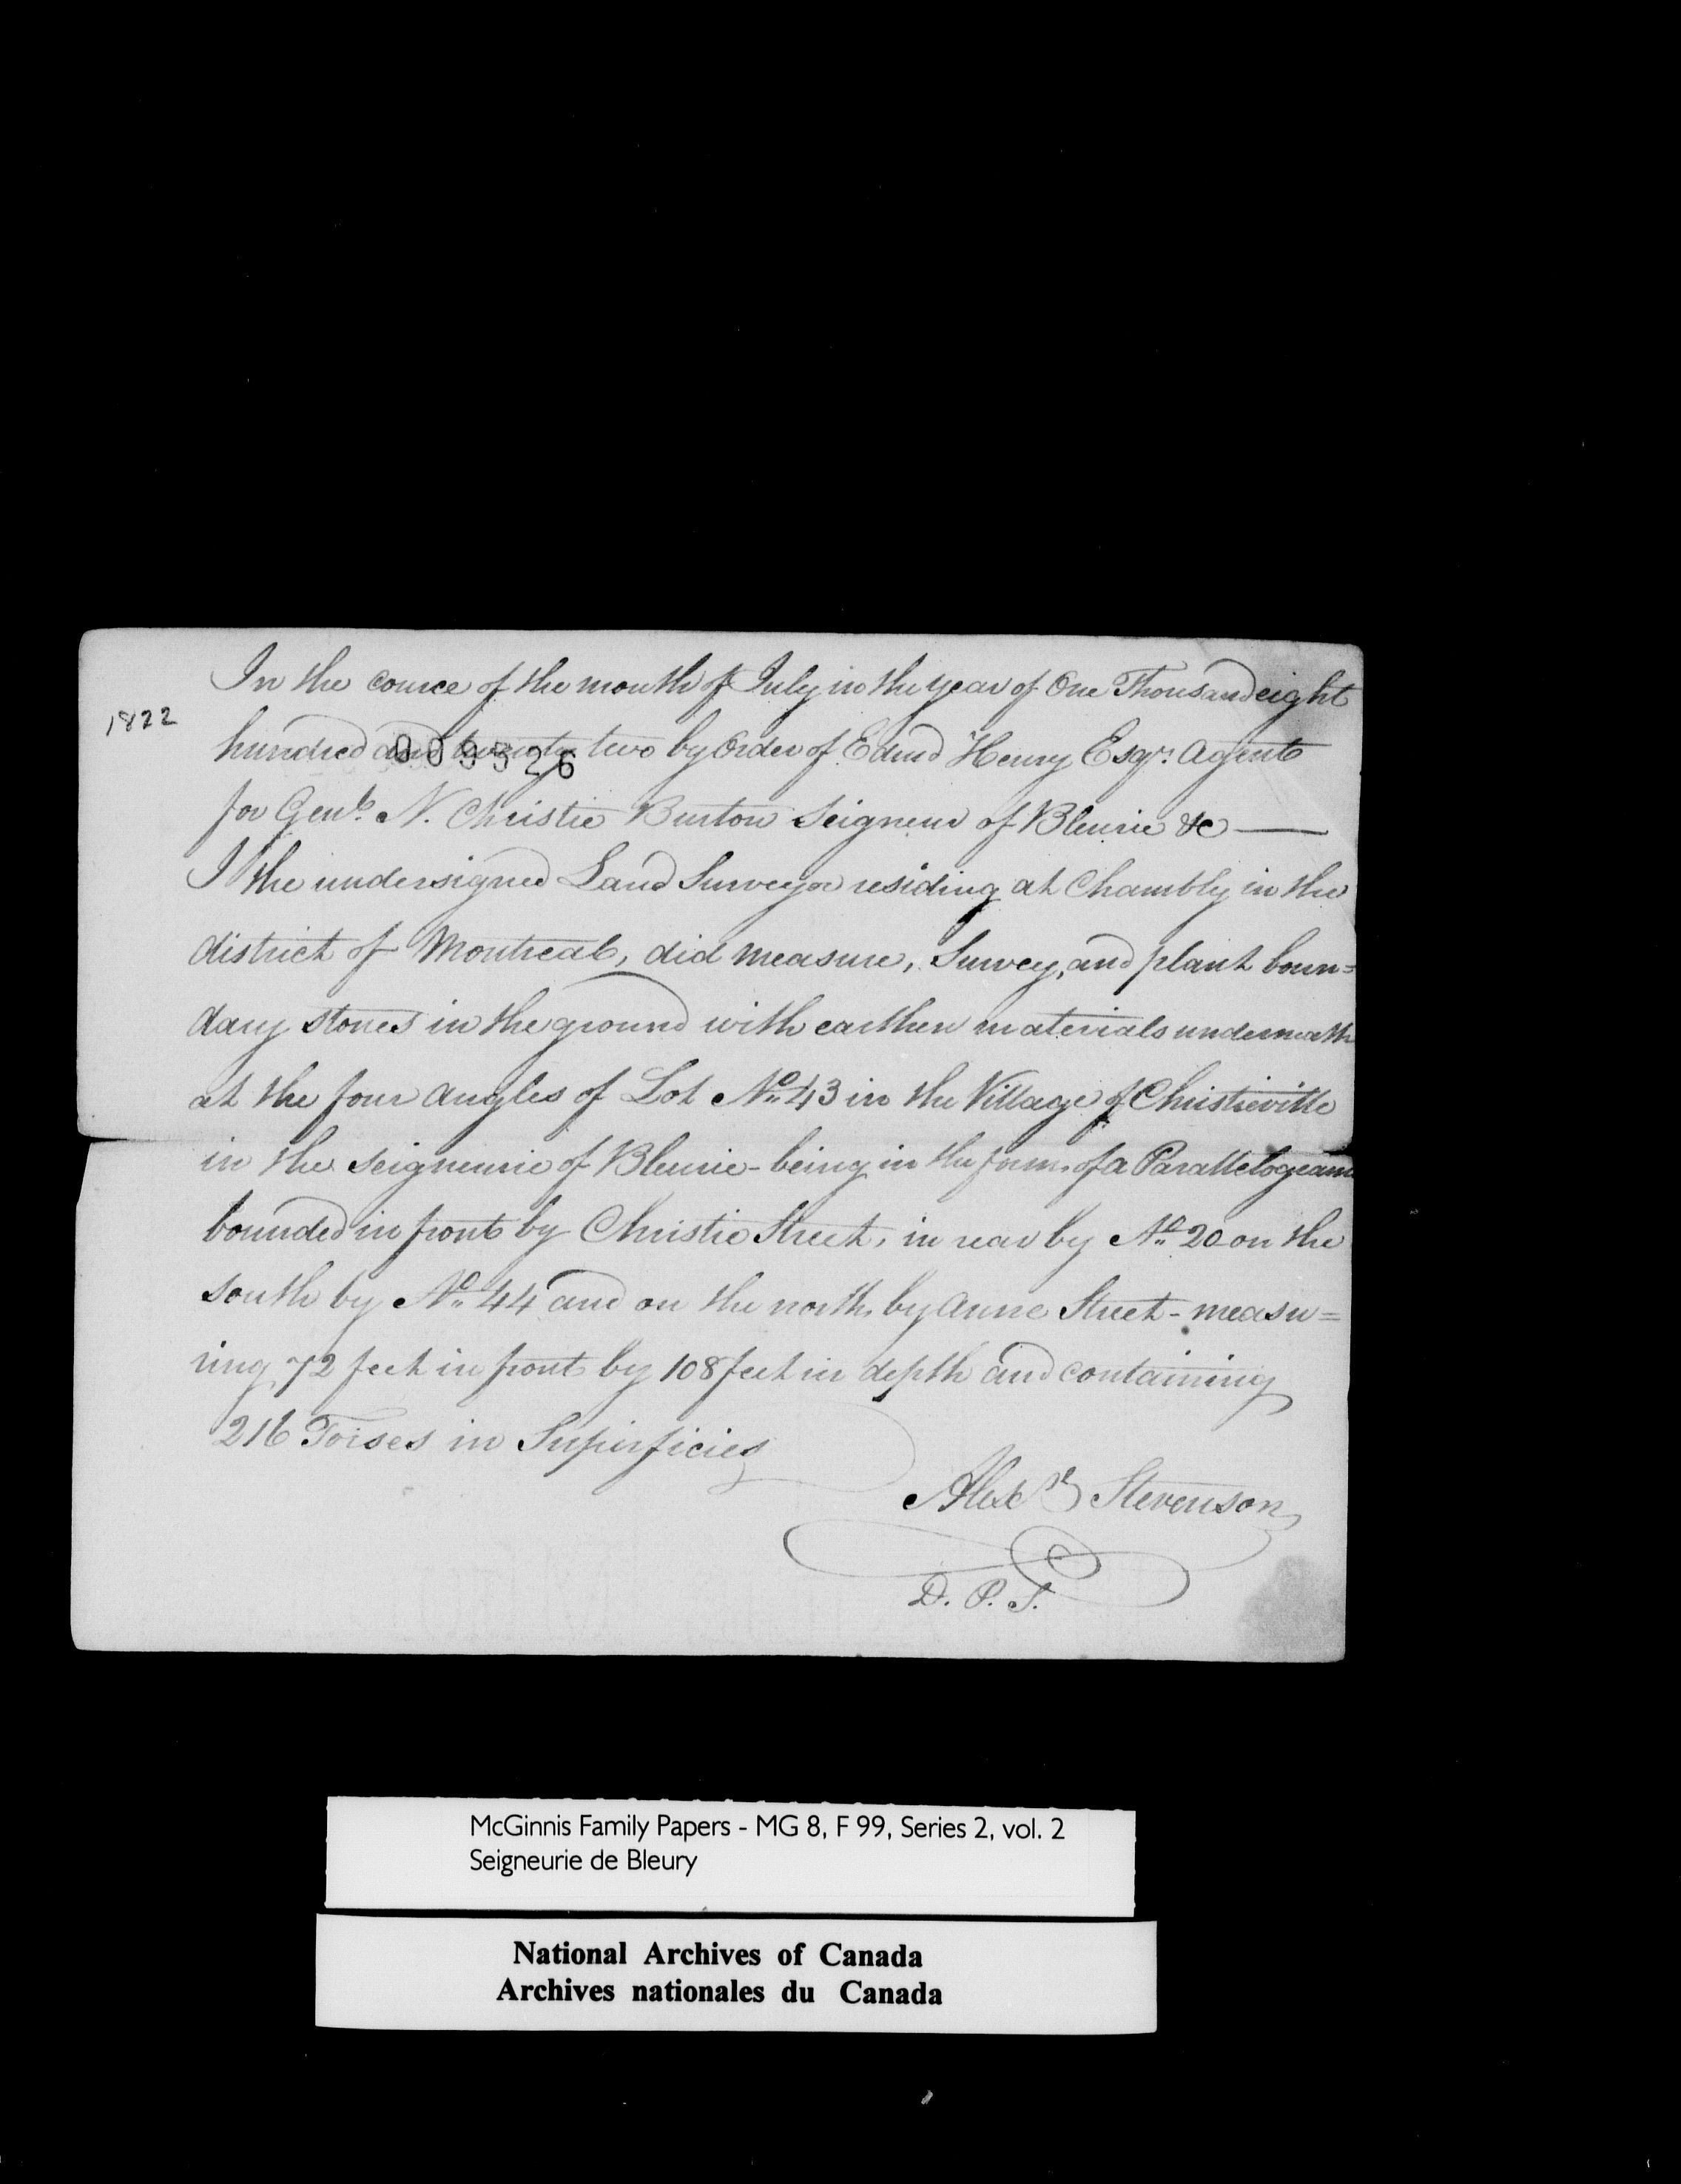 In the cource of the month of July in the year of One Thousand eight
1822
hundred and twenty two by Order of Edmd Henry Esqr. Agent
009526
for Genl. N. Christie Burton Seigneur of Bleurie &c
I the undersigned Land Surveyor residing at Chambly in the
district of Montreal, did measure, Survey, and plant boun=
dary stones in the ground with earthen materials underneath
at the four angles of Lot No. 43 in the Village of Christieville
in the seigneurie of Bleurie - being in the form of a Parallelogram
bounded in front by Christie Street, in rear by No. 20 on the
south by No. 44 and on the north by Anne Street - measu=
ring 72 feet in front by 108 feet in depth and containing
216 Toises in Superficies
Alexr Stevenson
D. P. S.
McGinnis Family Papers - MG 8, F 99, Series 2, vol. 2
Seigneurie de Bleury
National Archives of Canada
Archives nationales du Canada